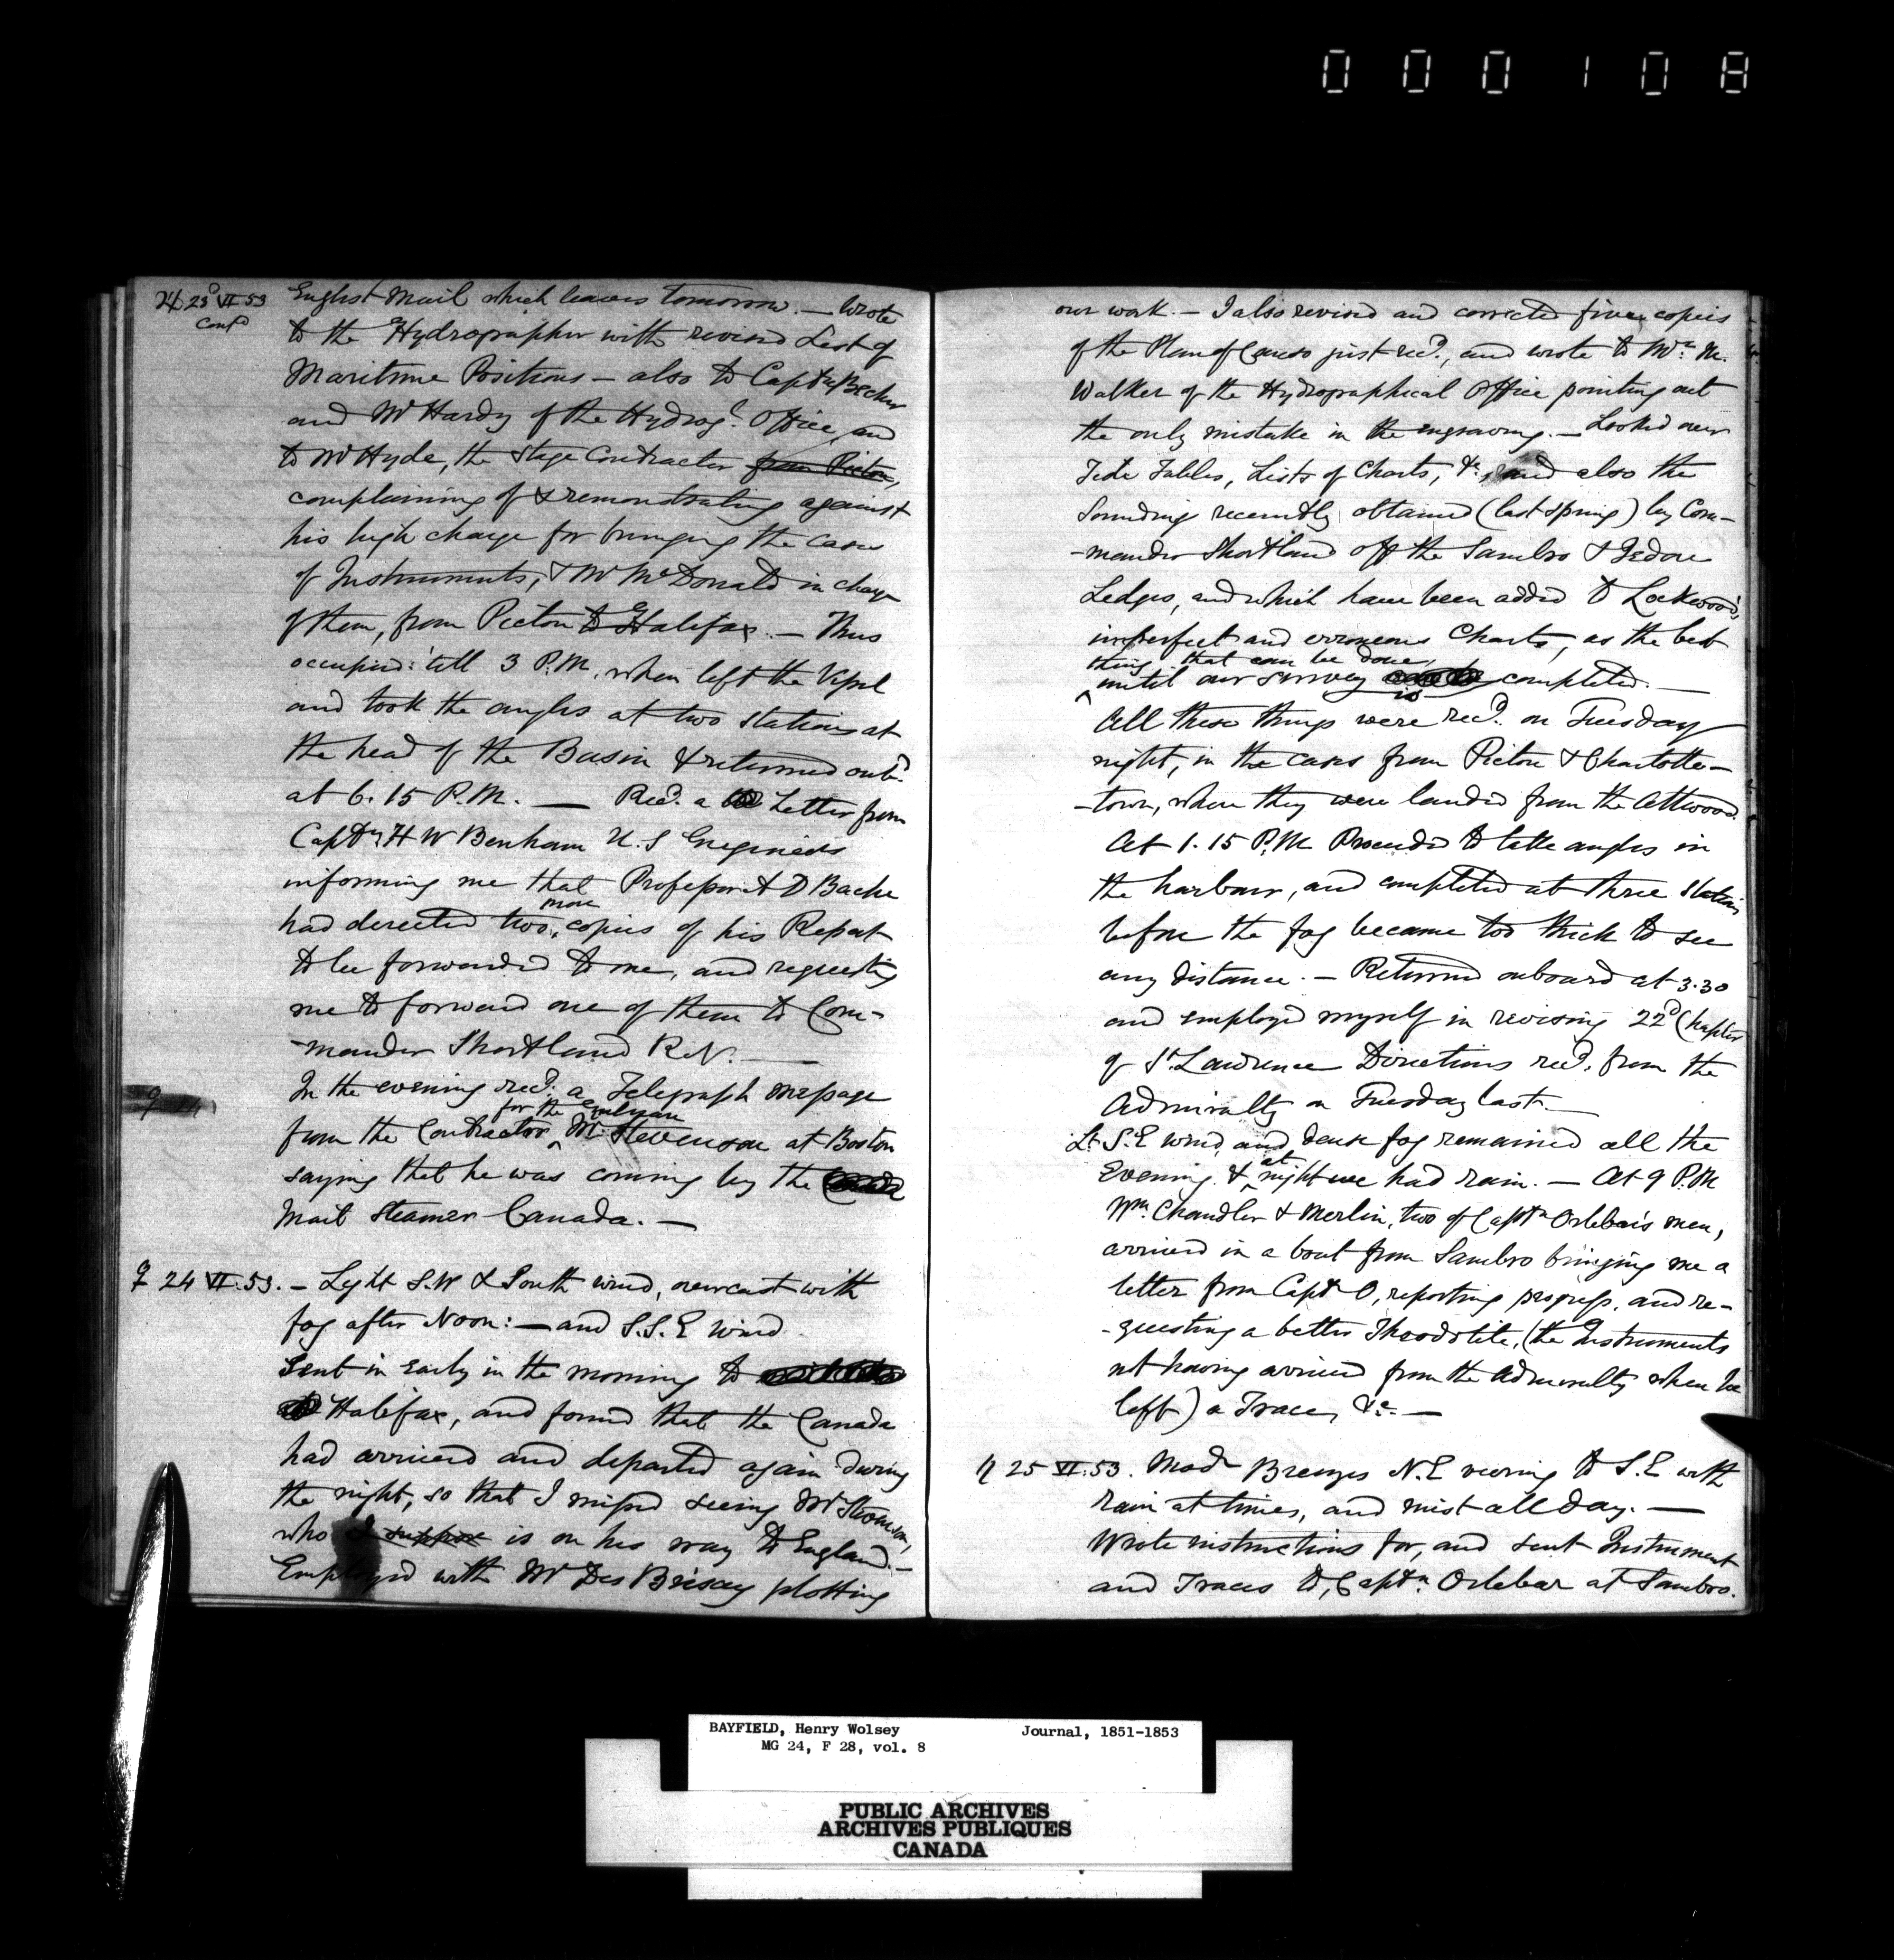 000108
♃ 23d VI 53 English Mail which leaves tomorrow. — Wrote
Contd to the Hydrographer with revised List of
Maritime Positions — also to Captn Becher
and Mr Hardy of the Hydrogl. Office, and
to Mr Hyde, the Stage Contractor from Pictou,
complaining of & remonstrating against
his high charge for bringing the cases
of Instruments, & Mr McDonald in charge
of them, from Pictou to Halifax. — Thus
occupied till 3 P.M. when left the Vessel
and took the angles at two stations at
the head of the Basin & returned onbd.
at 6.15 P.M. — Recd. a Letter from
Captn H W Benham U.S Engineers
informing me that Professor A D Bache
more
had directed two copies of his Report
to be forwarded to me, and requesting
me to forward one of them to Com-
-mander Shortland R.N. —
In the evening recd. a Telegraph message
for the Gulnare
from the Contractor Mr. Stevenson at Boston
saying that he was coming by the
Mail Steamer Canada. —
♀ 24 VI.53. — Light S.W & South wind, overcast with
fog after Noon: — and S.S.E wind.
Sent in early in the morning to
Halifax, and found that the Canada
had arrived and departed again during
the night, so that I missed seeing Mr
who I suppose is on his way to England. —
Employed with Mr Des Brisay plotting
our work. — I also revised and corrected five copies
of the Plan of Canso just recd., and wrote to Mr. M.
Walker of the Hydrographical Office pointing out
the only mistake in the engraving. — Looked over
Tide Tables, Lists of Charts, &c, and also the
Sounding recently obtained (last spring) by Com-
-mander Shortland off the Sambro & Jedore
Ledges, and which have been added to Lockwood's
imperfect and erroneous Charts, as the best
thing that can be done,
until our survey is completed. —
All these things were recd. on Tuesday
night, in the cases from Pictou & Charlotte-
-town, where they were landed from the Attwood.
At 1.15 P.M. Proceeded to take angles in
the harbour, and completed at three stations
before the fog became too thick to see
any distance. — Returned onboard at 3.30
and employed myself in revising 22d Chapter
of St. Lawrence Directions recd. from the
Admiralty on Tuesday last. —
Lt. S.E wind, and dense fog remained all the
at
Evening. & night we had rain. — At 9 P.M
Wm. Chandler & Merlin, two of Captn Orlebar's men,
arrived in a boat from Sambro bringing me a
letter from Capt O, reporting progress, and re-
-questing a better Theodolite, (the Instruments
not having arrived from the Admiralty when he
left) a Trace, &c. —
♄ 25 VI.53. Modr Breezes N.E veering to S.E with
rain at times, and mist all day. —
Wrote instructions for, and sent Instrument
and Traces to, Captn. Orlebar at Sambro.
BAYFIELD, Henry Wolsey Journal, 1851-1853
MG 24, F 28, vol. 8
PUBLIC ARCHIVES
ARCHIVES PUBLIQUES
CANADA